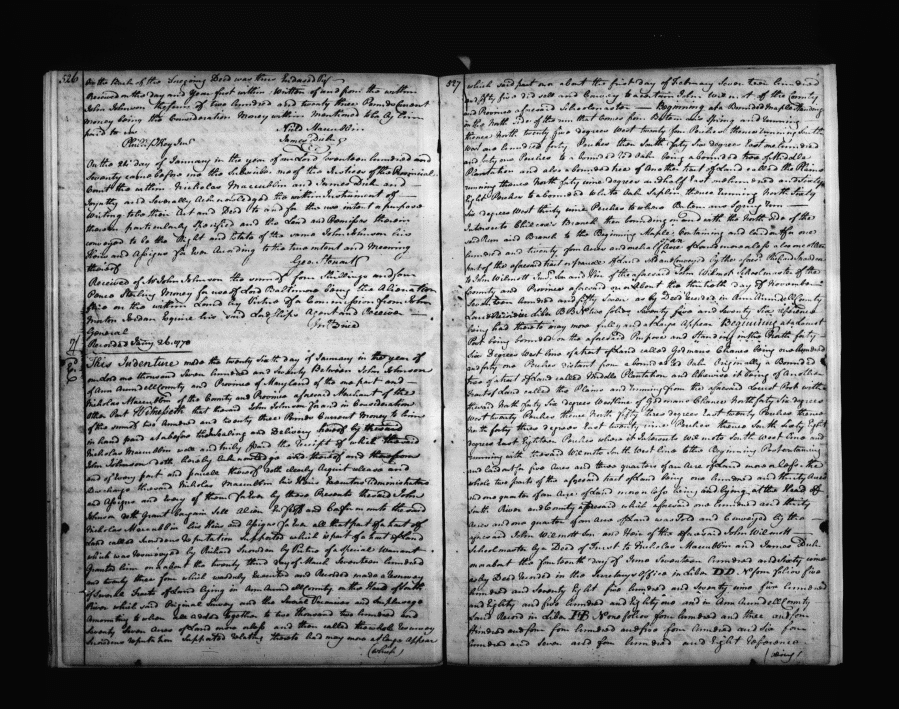 526
On the Back of the foregoing Deed was thus Endorsed Viz
Received on the day and Year first within Written of and from the within
John Johnson the sum of two hundred and twenty three Pounds Current
Money being the Consideration Money within Mentioned to be by him
paid to us
Nichs Maccubbin
Philip Key Junr James Dick
On the 26 day of January in the year of our Lord seventeen hundred and
Seventy came before me the Subscriber one of the Justices of the Provincial
Court the within Nicholas Maccubbin and James Dick and
Joyntly and Severally Acknowledged the within Instrument of
Writing to be their Act and Deed to and for the use intent & purpose
therein particularly Specified and the Land and Premises therein
conveyed to be the Right and Estate of the same John Johnson his
Heirs and Assigns for Ever According to the true intent and Meaning
thereof
Geo: Steuart
Received of Mr John Johnson the sum of four Shillings and four
Pence Sterling Money for use of Lord Baltimore being the Alienation
fine on the within Land by Virtue of a Commission from John
Morton Jordan Esquire his said Lordships Agent and Receiver
General
Recorded Jany 26. 1770
This Indenture made the twenty sixth day of January in the year of
our Lord one thousand Seven hundred and Seventy Between John Johnson
of Ann Arundell County and Province of Maryland of the one part and
Nicholas Maccubbin of the County and Province aforesaid Merchant of the
other Part Witnesseth that the said John Johnson for and in Consideration
of the sum of two hundred and twenty three Pounds Current Money to him
in hand paid at & before the Sealing and Delivery hereof by the said
Nicholas Maccubbin well and truly paid the Receipt of which the said
John Johnson doth hereby Acknowledge and thereof and therefrom
and of every part and parcell thereof doth clearly Acquit release and
discharge the said Nicholas Maccubbin his Heirs Executors Administrators
and Assigns and Every of them for Ever by these Presents the said John
Johnson doth Grant Bargain Sell Alien Enfeoff and Confirm unto the said
Nicholas Maccubbin his Heirs and Assigns for Ever all that part of a tract of
Land called Snowdens Reputation Supported which is part of a tract of Land
which was resurveyed by Richard Snowden by Virtue of a Special Warrant
Granted him on or about the twenty third day of March Seventeen hundred
and twenty three four which was duly executed and Recorded made a resurvey
of Several Tracts of Land lying in Ann Arundell County on the Head of South
River which said Original Survey and the Several Vacancies and Surplusage
Amounting to when all added together to two thousand two hundred and
Seventy Seven Acres of Land more or less and then called the whole resurvey
Snowdens reputation Supported relating thereto had may more at large Appear
(Which)
527
which said part on or about the first day of February Seventeen hundred
and fifty five did sell and Convey to a certain John Wilmot of the County
and Province aforesaid Schoolmaster Beginning at a Bounded Maple Standing
on the North side of the run that comes from Butens Spring and running
thence North twenty two degrees West twenty four Perches thence running South
West one hundred forty Perches then South forty Six degrees East one hundred
and forty one Perches to a bounded red Oak being a bounded tree of Middle
Plantation and also a bounded tree of Another tract of Land called the Plains
running thence North forty nine degrees and half East one hundred and Sixty
Eight Perches to a bounded White Oak Saplin thence running North Sixty
Six degrees West thirty nine Perches to where Butens Spring run
Intersects Chilcoats Branch then bounding on and with the North side of the
said Run and Branch to the Beginning Maple Containing and laid out for one
hundred and twenty four Acres and one half Acre of Land more or less also
part of the aforesaid tract or parcel of Land sold and conveyed by the aforesd
to John Wilmott Junr Son and Heir of the aforesaid John Wilmot Schoolmaster of the
County and Province aforesaid on or about the thirtieth day of November
Seventeen hundred and fifty Seven as by Deed recorded in Ann Arundell County
Land Records in Liber BB No two folios Seventy five and Seventy Six reference
being had thereto may more fully and at large Appear Beginning at a Locust
Post being bounded on the aforesaid Purpose and Standing in the North forty
Six degrees West line of a tract of Land called Godmans Chance being one hundred
and forty one Perches distant from a bounded red Oak Originally a Bounded
tree of a tract of Land called Middle Plantation and likewise it being of another
Tract of Land called the Plains and running from the aforesaid Locust Post with
the said North forty Six degrees West line of Godmans Chance North forty Six degrees
West twenty Perches thence North fifty three degrees East twenty Perches thence
North forty three degrees East twenty nine Perches thence South Sixty Eight
degrees East Eighteen Perches where it Intersects Wilmots South West line and
running with the said Wilmots South West line to the Beginning Post containing
and laid out for five Acres and three quarters of an Acre of Land more or less the
whole two parts of the aforesaid tract of Land being one hundred and thirty Acres
and one quarter of an Acre of Land more or less being and lying at the Head of
South River and County aforesaid which aforesaid one hundred and thirty
Acres and one quarter of an Acre of Land was Sold and Conveyed by the
aforesaid John Wilmott Son and Heir of the aforesaid John Wilmott
Schoolmaster by a Deed of Trust to Nicholas Maccubbin and James Dick
on or about the fourteenth day of June Seventeen hundred and Sixty nine
as by Deed recorded in the Secretarys Office in Liber DD No four folios five
hundred and Seventy Eight five hundred and Seventy nine five hundred
and Eighty and five hundred and Eighty one and in Ann Arundell County
Land Record in Liber IB No one folios four hundred and three and four
Hundred and four four hundred and five four hundred and Six four
hundred and Seven and four hundred and Eight reference
(being)